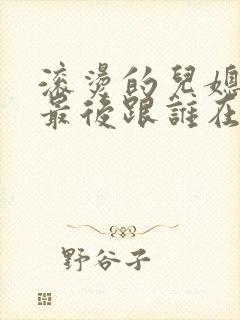 滚燙的兒媳
最後跟誰在
野谷子